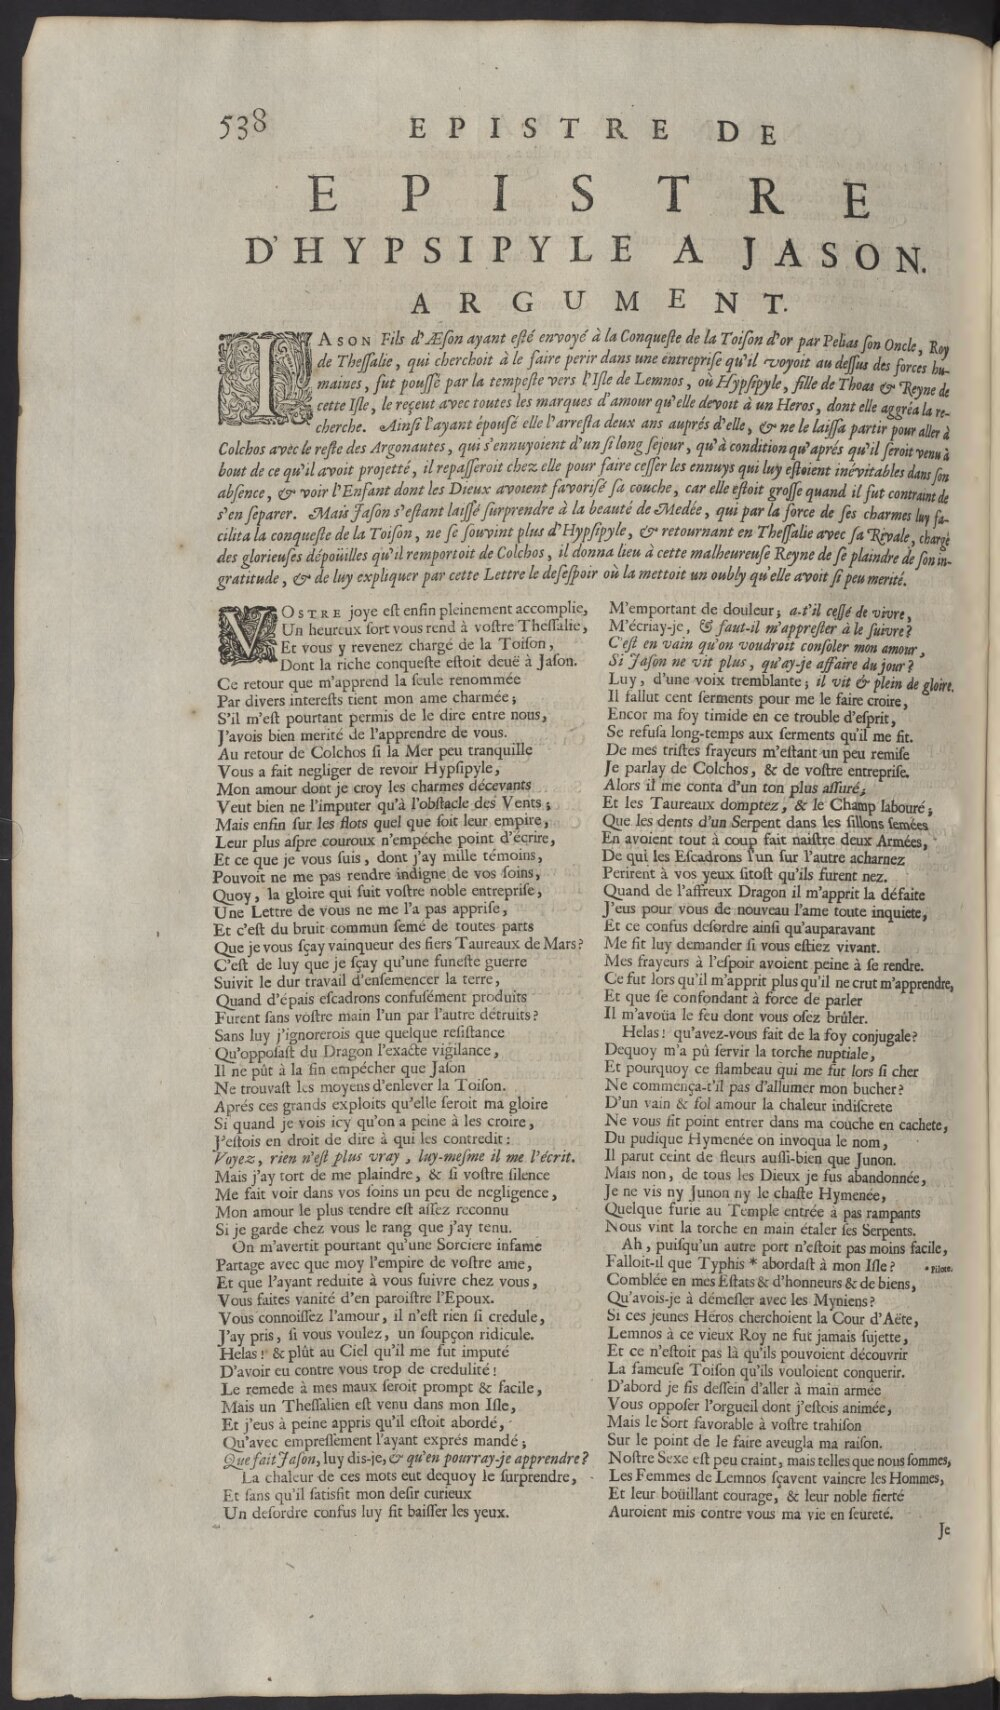 538
EPISTRE DE
EPISTRE
D'HYPSIPYLE A JASON.
ARGUMENT.
IASON Fils d'Æson ayant esté envoyé à la Conqueste de la Toison d'or par Pelias son Oncle, Roy
de Thessalie, qui cherchoit à le faire perir dans une entreprise qu'il voyoit au dessus des forces hu-
maines, fut poussé par la tempeste vers l'Isle de Lemnos, où Hypsipyle, fille de Thoas & Reyne de
cette Isle, le reçeut avec toutes les marques d'amour qu'elle devoit à un Heros, dont elle aggréa la re-
cherche. Ainsi l'ayant épousé elle l'arresta deux ans auprés d'elle, & ne le laissa partir pour aller à
Colchos avec le reste des Argonautes, qui s'ennuyoient d'un si long sejour, qu'à condition qu'aprés qu'il seroit venu à
bout de ce qu'il avoit projetté, il repasseroit chez elle pour faire cesser les ennuys qui luy estoient inévitables dans son
absence, & voir l'Enfant dont les Dieux avoient favorisé sa couche, car elle estoit grosse quand il fut contraint de
s'en separer. Mais Jason s'estant laissé surprendre à la beauté de Medée, qui par la force de ses charmes luy fa-
cilita la conqueste de la Toison, ne se souvint plus d'Hypsipyle, & retournant en Thessalie avec sa Rivale, chargé
des glorieuses dépoüilles qu'il remportoit de Colchos, il donna lieu à cette malheureuse Reyne de se plaindre de son in-
gratitude, & de luy expliquer par cette Lettre le desespoir où la mettoit un oubly qu'elle avoit si peu merité.
VOSTRE joye est enfin pleinement accomplie,
Un heureux sort vous rend à vostre Thessalie,
Et vous y revenez chargé de la Toison,
Dont la riche conqueste estoit deuë à Jason.
Ce retour que m'apprend la seule renommée
Par divers interests tient mon ame charmée;
S'il m'est pourtant permis de le dire entre nous,
J'avois bien merité de l'apprendre de vous.
Au retour de Colchos si la Mer peu tranquille
Vous a fait negliger de revoir Hypsipyle,
Mon amour dont je croy les charmes décevants
Veut bien ne l'imputer qu'à l'obstacle des Vents;
Mais enfin sur les flots quel que soit leur empire,
Leur plus aspre couroux n'empéche point d'écrire,
Et ce que je vous suis, dont j'ay mille témoins,
Pouvoit ne me pas rendre indigne de vos soins,
Quoy, la gloire qui suit vostre noble entreprise,
Une Lettre de vous ne me l'a pas apprise,
Et c'est du bruit commun semé de toutes parts
Que je vous sçay vainqueur des fiers Taureaux de Mars?
C'est de luy que je sçay qu'une funeste guerre
Suivit le dur travail d'ensemencer la terre,
Quand d'épais escadrons confusément produits
Furent sans vostre main l'un par l'autre détruits?
Sans luy j'ignorerois que quelque resistance
Qu'opposast du Dragon l'exacte vigilance,
Il ne pût à la fin empécher que Jason
Ne trouvast les moyens d'enlever la Toison.
Aprés ces grands exploits qu'elle seroit ma gloire
Si quand je vois icy qu'on a peine à les croire,
J'estois en droit de dire à qui les contredit:
Voyez, rien n'est plus vray, luy-mesme il me l'écrit.
Mais j'ay tort de me plaindre, & si vostre silence
Me fait voir dans vos soins un peu de negligence,
Mon amour le plus tendre est assez reconnu
Si je garde chez vous le rang que j'ay tenu.
On m'avertit pourtant qu'une Sorciere infame
Partage avec que moy l'empire de vostre ame,
Et que l'ayant reduite à vous suivre chez vous,
Vous faites vanité d'en paroistre l'Epoux.
Vous connoissez l'amour, il n'est rien si credule,
J'ay pris, si vous voulez, un soupçon ridicule.
Helas! & plût au Ciel qu'il me fut imputé
D'avoir eu contre vous trop de credulité!
Le remede à mes maux seroit prompt & facile,
Mais un Thessalien est venu dans mon Isle,
Et j'eus à peine appris qu'il estoit abordé,
Qu'avec empressement l'ayant exprés mandé;
Que fait Jason, luy dis-je, & qu'en pourray-je apprendre?
La chaleur de ces mots eut dequoy le surprendre,
Et sans qu'il satisfit mon desir curieux
Un desordre confus luy fit baisser les yeux.
M'emportant de douleur; a-t'il cessé de vivre,
M'écriay-je, & faut-il m'apprester à le suivre?
C'est en vain qu'on voudroit consoler mon amour,
Si Jason ne vit plus, qu'ay-je affaire du jour?
Luy, d'une voix tremblante; il vit & plein de gloire.
Il fallut cent serments pour me le faire croire,
Encor ma foy timide en ce trouble d'esprit,
Se refusa long-temps aux serments qu'il me fit.
De mes tristes frayeurs m'estant un peu remise
Je parlay de Colchos, & de vostre entreprise.
Alors il me conta d'un ton plus assuré,
Et les Taureaux domptez, & le Champ labouré;
Que les dents d'un Serpent dans les sillons semées
En avoient tout à coup fait naistre deux Armées,
De qui les Escadrons l'un sur l'autre acharnez
Perirent à vos yeux sitost qu'ils furent nez.
Quand de l'affreux Dragon il m'apprit la défaite
J'eus pour vous de nouveau l'ame toute inquiete,
Et ce confus desordre ainsi qu'auparavant
Me fit luy demander si vous estiez vivant.
Mes frayeurs à l'espoir avoient peine à se rendre.
Ce fut lors qu'il m'apprit plus qu'il ne crut m'apprendre,
Et que se confondant à force de parler
Il m'avoüa le feu dont vous osez brûler.
Helas! qu'avez-vous fait de la foy conjugale?
Dequoy m'a pû servir la torche nuptiale,
Et pourquoy ce flambeau qui me fut lors si cher
Ne commença-t'il pas d'allumer mon bucher?
D'un vain & fol amour la chaleur indiscrete
Ne vous fit point entrer dans ma couche en cachete,
Du pudique Hymenée on invoqua le nom,
Il parut ceint de fleurs aussi-bien que Junon.
Mais non, de tous les Dieux je fus abandonnée,
Je ne vis ny Junon ny le chaste Hymenée,
Quelque furie au Temple entrée à pas rampants
Nous vint la torche en main étaler ses Serpents.
Ah, puisqu'un autre port n'estoit pas moins facile,
Falloit-il que Typhis * abordast à mon Isle? * Pilote.
Comblée en mes Estats & d'honneurs & de biens,
Qu'avois-je à démesler avec les Myniens?
Si ces jeunes Héros cherchoient la Cour d'Aëte,
Lemnos à ce vieux Roy ne fut jamais sujette,
Et ce n'estoit pas là qu'ils pouvoient découvrir
La fameuse Toison qu'ils vouloient conquerir.
D'abord je fis dessein d'aller à main armée
Vous opposer l'orgueil dont j'estois animée,
Mais le Sort favorable à vostre trahison
Sur le point de le faire aveugla ma raison.
Nostre Sexe est peu craint, mais telles que nous sommes,
Les Femmes de Lemnos sçavent vaincre les Hommes,
Et leur boüillant courage, & leur noble fierté
Auroient mis contre vous ma vie en seureté.
Je